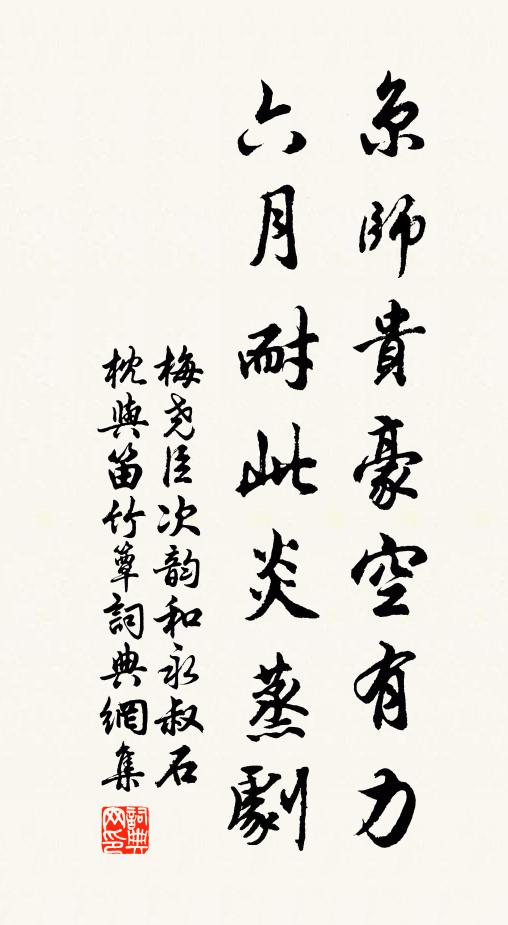 京師貴豪空有力
六月耐此炎蒸劇
梅尧臣次韵和永叔石
枕與笛竹簟詞典網集
詞典网印